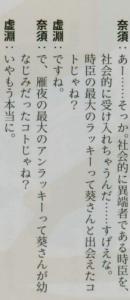 奈須：あー……そっか、社会的に異端者である時臣を、
社会的に受け入れちゃうんだ……すげえな。
時臣の最大のラッキーって葵さんと出会えたコ
トじゃね？
虚淵：ですね。
奈須：で、雁夜の最大のアンラッキーって葵さんが幼
なじみだったコトじゃね？
虚淵：いやもう本当に。